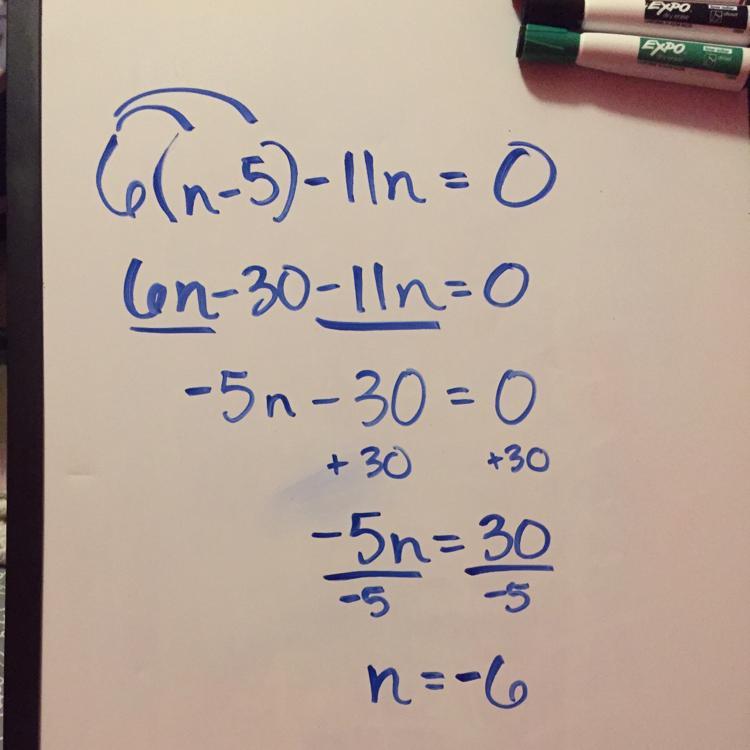 EXPO
dry erase
EXPO
dry erase
6(n-5)-11n=0
6n-30-11n=0
-5n-30=0
+30 +30
-5n=30
-5 -5
n=-6